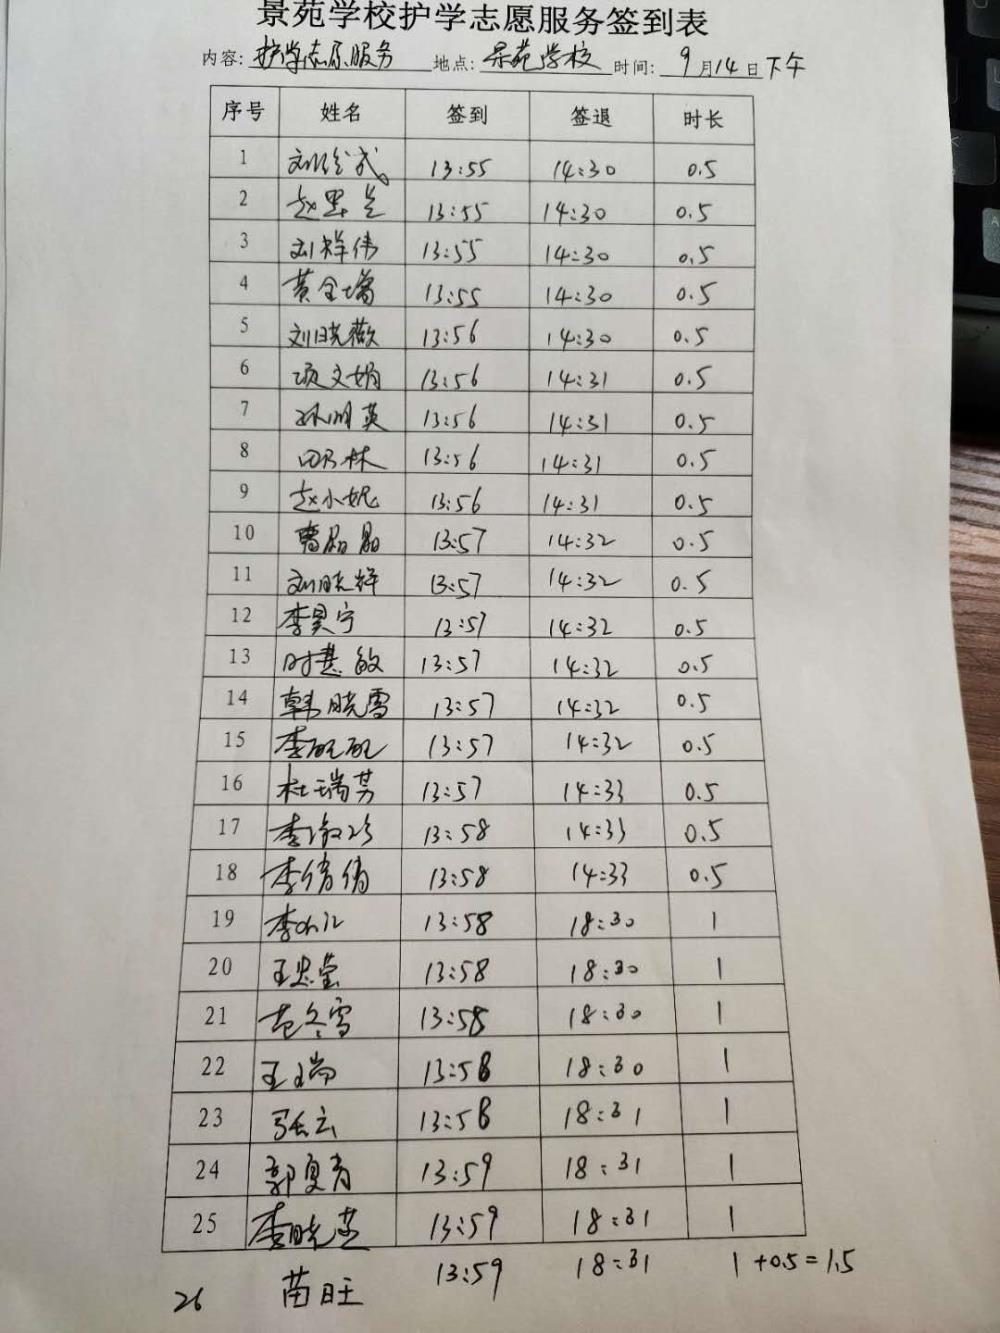 景苑学校护学志愿服务签到表
内容: 护学志愿服务 地点: 景苑学校 时间: 9月14日下午
序号 姓名 签到 签退 时长
1 13:55 14:30 0.5
2 13:55 14:30 0.5
3 刘祥伟 13:55 14:30 0.5
4 黄金增 13:55 14:30 0.5
5 刘晓薇 13:56 14:30 0.5
6 项文娟 13:56 14:31 0.5
7 孙明英 13:56 14:31 0.5
8 田乃林 13:56 14:31 0.5
9 赵小妮 13:56 14:31 0.5
10 曹晶晶 13:57 14:32 0.5
11 刘晓祥 13:57 14:32 0.5
12 李昊宁 13:57 14:32 0.5
13 时慧敏 13:57 14:32 0.5
14 韩晓雪 13:57 14:32 0.5
15 李 13:57 14:32 0.5
16 杜瑞芳 13:57 14:33 0.5
17 李淑珍 13:58 14:33 0.5
18 李倩倩 13:58 14:33 0.5
19 李 13:58 18:30 1
20 王忠莹 13:58 18:30 1
21 范冬雪 13:58 18:30 1
22 王瑞 13:58 18:30 1
23 张云 13:58 18:31 1
24 郭夏青 13:59 18:31 1
25 李晓燕 13:59 18:31 1
26 苗旺 13:59 18:31 1+0.5=1.5